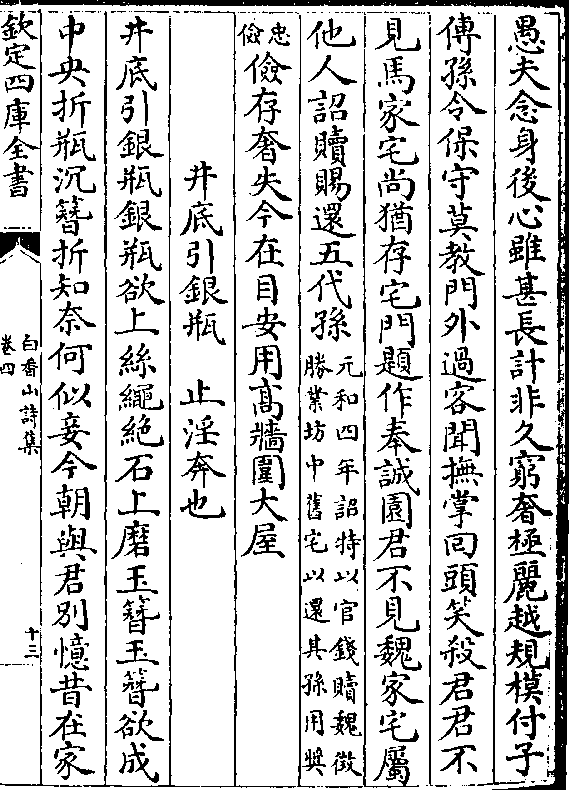 愚夫念身後心雖甚長計非久窮奢極麗越規模付子
傳孫令保守莫教門外過客聞撫掌囘頭笑殺君君不
見馬家宅尚猶存宅門題作奉誠園君不見魏家宅屬
他人詔贖賜還五代孫元和四年詔特以官錢贖魏徵
勝業坊中舊宅以還其孫用奬
忠儉儉存奢失今在目安用髙牆圍大屋
井底引銀瓶 止淫奔也
井底引銀瓶銀瓶欲上絲繩絶石上磨玉簪玉簪欲成
中央折瓶沉簪折知奈何似妾今朝與君別憶昔在家
欽定四庫全書
白香山詩集
卷四
十三